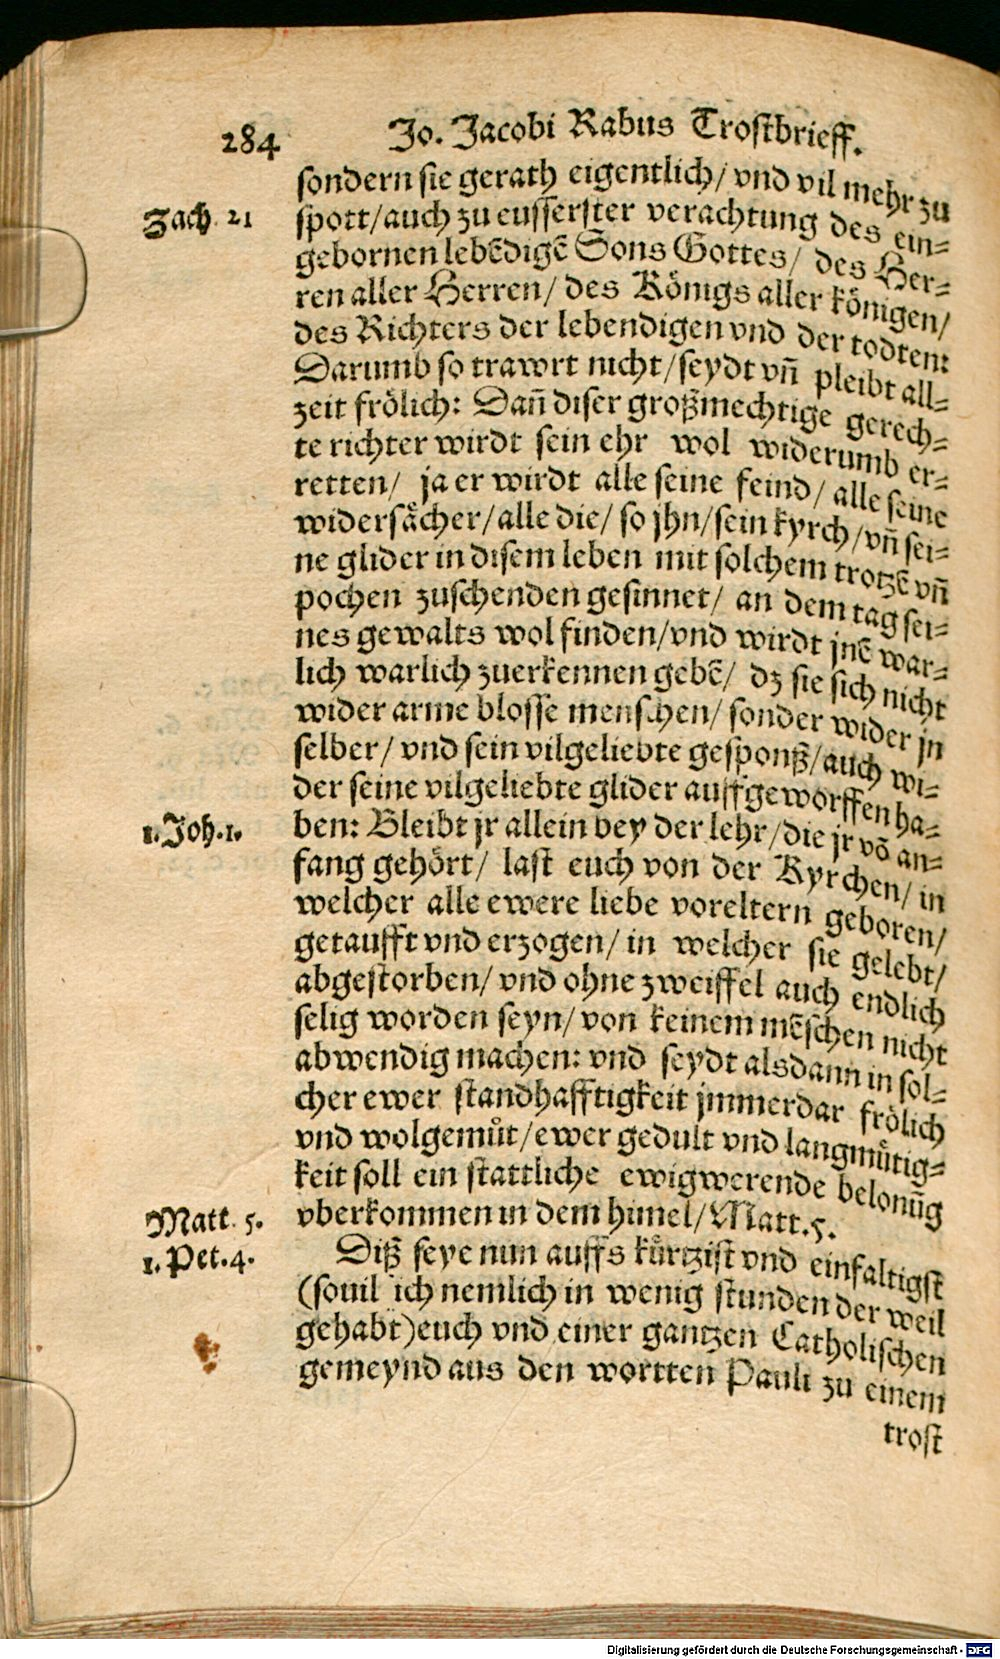 284 Jo. Jacobi Rabus Trostbrieff.
sondern sie gerath eigentlich/ vnd vil mehr zu
Zach. 21 spott/auch zu eusserster verachtung des ein-
gebornen lebẽdigẽ Sons Gottes/ des Her-
ren aller Herren/ des Königs aller königen/
des Richters der lebendigen vnd der todten:
Darumb so trawrt nicht/seydt vñ pleibt all-
zeit frölich: Dañ diser großmechtige gerech-
te richter wirdt sein ehr wol widerumb er-
retten/ ja er wirdt alle seine feind/ alle seine
widersächer/alle die/ so jhn/sein kyrch/vñ sei-
ne glider in disem leben mit solchem trotzẽ vñ
pochen zuschenden gesinnet/ an dem tag sei-
nes gewalts wol finden/vnd wirdt jnẽ war-
lich warlich zuerkennen gebẽ/ dz sie sich nicht
wider arme blosse menschen/ sonder wider jn
selber/ vnd sein vilgeliebte gesponß/auch wi-
der seine vilgeliebte glider auffgeworffen ha-
1. Joh.1. ben: Bleibt jr allein bey der lehr/die jr võ an-
fang gehört/ last euch von der Kyrchen/ in
welcher alle ewere liebe voreltern geboren/
getaufft vnd erzogen/ in welcher sie gelebt/
abgestorben/ vnd ohne zweiffel auch endlich
selig worden seyn/ von keinem mẽschen nicht
abwendig machen: vnd seydt alsdann in sol-
cher ewer standhafftigkeit jmmerdar frölich
vnd wolgemůt/ewer gedult vnd langmůtig-
keit soll ein stattliche ewigwerende belonũg
Matt. 5. vberkommen in dem himel/Matt.5.
1. Pet.4. Diß seye nun auffs kürtzist vnd einfaltigst
(souil ich nemlich in wenig stunden der weil
gehabt)euch vnd einer gantzen Catholischen
gemeynd aus den wortten Pauli zu einem
trost
Digitalisierung gefördert durch die Deutsche Forschungsgemeinschaft - DFG